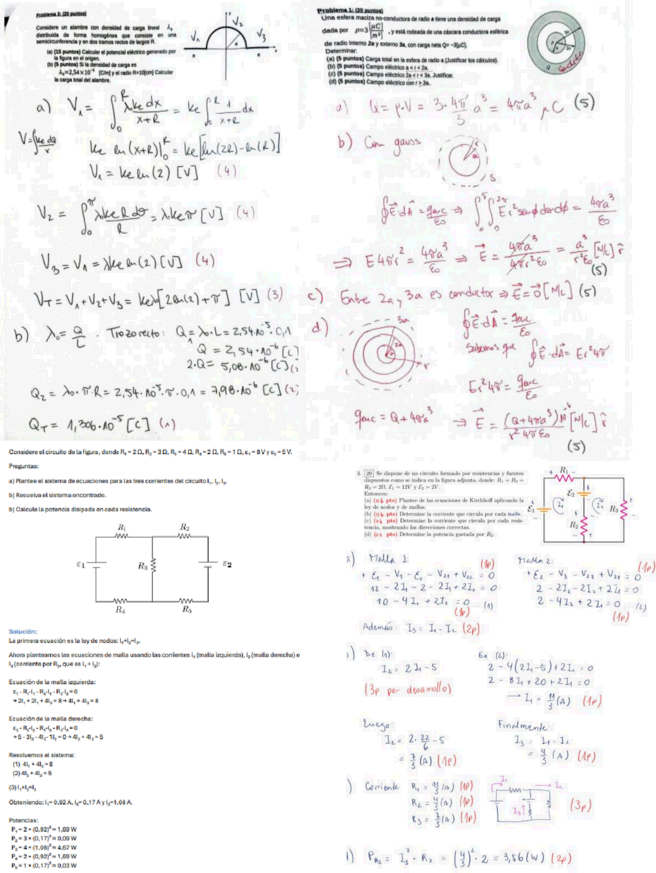 Problema 2: (25 puntos)
Considere un alambre con densidad de carga lineal λ₀
distribuida de forma homogénea que consiste en una
semicircunferencia y en dos tramos rectos de largo R.
(a) (15 puntos) Calcular el potencial eléctrico generado por
la figura en el origen.
(b) (5 puntos) Si la densidad de carga es
λ₀=2,54×10⁻⁵ [C/m] y el radio R=10[cm] Calcular
la carga total del alambre.
V₁
V₂
V₃
a) V₁ = ∫₀ᴿ λke dx / x+R = ke ∫₀ᴿ 1/x+R dx
ke ln(x+R)|₀ᴿ = ke[ln(2R)-ln(R)]
V₁ = ke ln(2) [V] (4)
V₂ = ∫₀^π λke R dθ / R = λke π [V] (4)
V₃ = V₁ = λke ln(2) [V] (4)
V_T = V₁+V₂+V₃ = keλ[2ln(2)+π] [V] (3)
b) λ₀ = Q/L . Trozo recto: Q = λ₀·L = 2,54·10⁻⁵·0,1
Q = 2,54·10⁻⁶ [C]
2·Q = 5,08·10⁻⁶ [C]
Q₂ = λ₀·π·R = 2,54·10⁻⁵·π·0,1 = 7,98·10⁻⁶ [C]
Q_T = 1,306·10⁻⁵ [C]
Problema 1: (20 puntos)
Una esfera maciza no-conductora de radio a tiene una densidad de carga
dada por ρ=3[μC/m³], y está rodeada de una cáscara conductora esférica
de radio interno 2a y externo 3a, con carga neta Q= -3[μC].
Determinar:
(a) (5 puntos) Carga total en la esfera de radio a (Justificar los cálculos).
(b) (5 puntos) Campo eléctrico a < r < 2a.
(c) (5 puntos) Campo eléctrico 2a < r < 3a. Justificar.
(d) (5 puntos) Campo eléctrico con r > 3a.
a) Q = ρ·V = 3·4π/3 a³ = 4πa³ μC (5)
b) Con gauss
∮E·dA = qenc/ε₀ ⇒ ∫∫ E r² senφ dθ dφ = 4πa³/ε₀
⇒ E4πr² = 4πa³/ε₀ ⇒ E = 4πa³/4πr²ε₀ = a³/r²ε₀ [N/C] r̂
(5)
c) Entre 2a y 3a es conductor ⇒ E = 0 [N/C] (5)
d) ∮E·dA = qenc/ε₀
Sabemos que ∮E·dA = Er²4π
Er²4π = qenc/ε₀
qenc = Q+4πa³ ⇒ E = (Q+4πa³)10⁻⁶/r²4πε₀ [N/C] r̂
(5)
Considere el circuito de la figura, donde R₁ = 2 Ω, R₂ = 3 Ω, R₃ = 4 Ω, R₄ = 2 Ω, R₅ = 1 Ω, ε₁ = 8 V y ε₂ = 5 V.
Preguntas:
a) Plantee el sistema de ecuaciones para las tres corrientes del circuito I₁, I₂, I₃.
b) Resuelva el sistema encontrado.
b) Calcule la potencia disipada en cada resistencia.
R₁ R₂
ε₁ R₃ ε₂
R₄ R₅
Solución:
La primera ecuación es la ley de nodos: I₁+I₂=I₃.
Ahora planteamos las ecuaciones de malla usando las corrientes I₁ (malla izquierda), I₂ (malla derecha) e
I₃ (corriente por R₃, que es I₁ + I₂):
Ecuación de la malla izquierda:
ε₁ - R₁·I₁ - R₄·I₁ - R₃·I₃ = 0
→ 2I₁ + 2I₁ + 4I₃ = 8 → 4I₁ + 4I₃ = 8
Ecuación de la malla derecha:
ε₂ - R₂·I₂ - R₃·I₃ - R₅·I₂ = 0
→ 5 - 3I₂ - 4I₃ - 1I₂ = 0 → 4I₂ + 4I₃ = 5
Resolvemos el sistema:
(1) 4I₁ + 4I₃ = 8
(2) 4I₂ + 4I₃ = 5
(3) I₁+I₂=I₃
Obteniendo: I₁= 0,92 A, I₂= 0,17 A y I₃=1,08 A.
Potencias:
P₁ = 2 × (0,92)² = 1,69 W
P₂ = 3 × (0,17)² = 0,09 W
P₃ = 4 × (1,08)² = 4,67 W
P₄ = 2 × (0,92)² = 1,69 W
P₅ = 1 × (0,17)² = 0,03 W
3. [20] Se dispone de un circuito formado por resistencias y fuentes
dispuestos como se indica en la figura adjunta, donde: R₁ = R₂ =
R₃ = 2Ω, ℰ₁ = 12V y ℰ₂ = 2V.
Entonces:
(a) pts) Plantee de las ecuaciones de Kirchhoff aplicando la
ley de nodos y de mallas.
(b) pts) Determine la corriente que circula por cada malla.
(c) pts) Determine la corriente que circula por cada resistencia, mostrando las direcciones correctas.
(d) pts) Determine la potencia gastada por R₂.
R₁
ℰ₁ ℰ₂ I₁ I₂ R₃
R₂
Malla 1: (1p) Malla 2: (1p)
+ ℰ₁ - V₁ - ℰ₂ - V₂₁ + V₂₂ = 0 + ℰ₂ - V₃ - V₂₂ + V₂₁ = 0
12 - 2I₁ - 2 - 2I₁ + 2I₂ = 0 2 - 2I₂ - 2I₂ + 2I₁ = 0
10 - 4I₁ + 2I₂ = 0 (1) 2 - 4I₂ + 2I₁ = 0 (2)
(1p) (1p)
Además: I₃ = I₁ - I₂ (2p)
De (1): En (2):
I₂ = 2I₁ - 5 2 - 4(2I₁-5) + 2I₁ = 0
(3p por desarrollo) 2 - 8I₁ + 20 + 2I₁ = 0
→ I₁ = 11/3 (A) (1p)
Luego: Finalmente:
I₂ = 2·22/6 - 5 I₃ = I₁ - I₂
= 7/3 (A) (1p) = 4/3 (A) (1p)
Corriente R₁ = 11/3 (A) (1p)
R₂ = 4/3 (A) (1p)
R₃ = 7/3 (A) (1p)
(3p)
P_R₂ = I₃² · R₂ = (4/3)² · 2 = 3,56 (W) (2p)